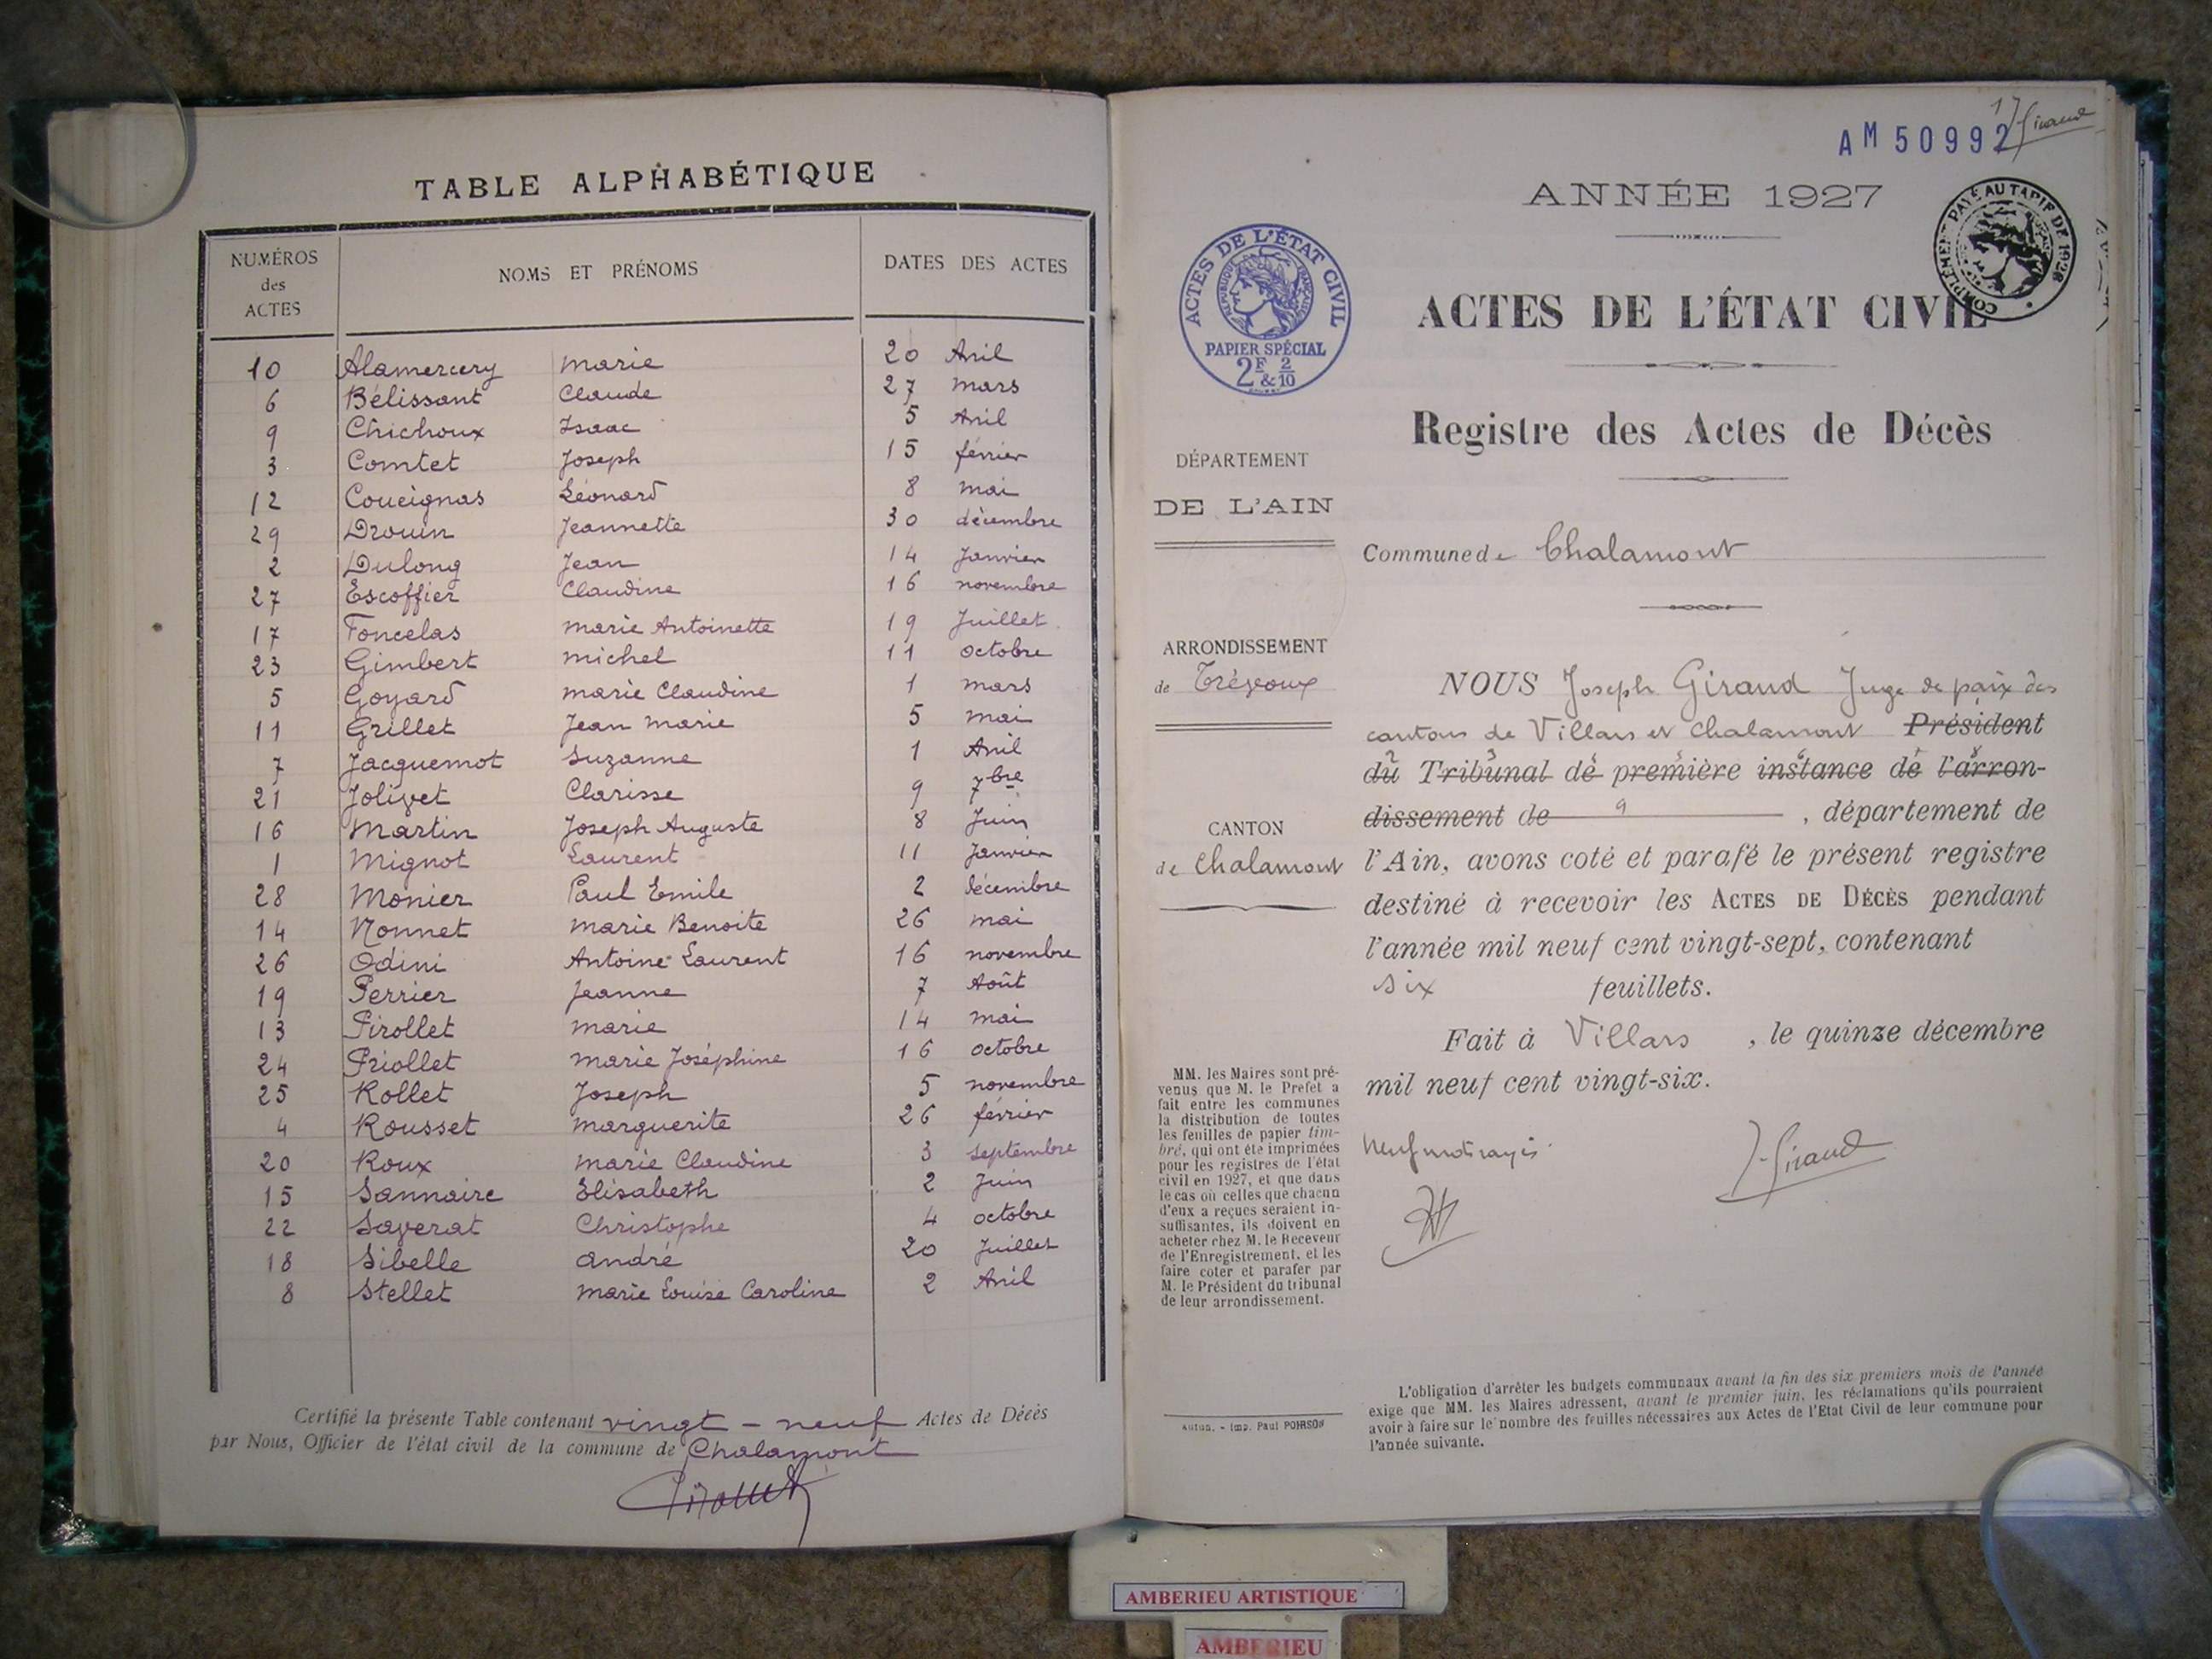 TABLE ALPHABÉTIQUE
NUMÉROS des ACTES NOMS ET PRÉNOMS DATES DES ACTES
10 Alamercery Marie 20 Avril
6 Bélissant Claude 27 Mars
9 Chichoux Isaac 5 Avril
3 Comtet Joseph 15 février
12 Coucignas Léonard 8 Mai
29 Drouin Jeannette 30 décembre
2 Dulong Jean 14 Janvier
27 Escoffier Claudine 16 novembre
17 Foncelas Marie Antoinette 19 Juillet
23 Gimbert Michel 11 Octobre
5 Goyard Marie Claudine 1 Mars
11 Grillet Jean Marie 5 Mai
7 Jacquemot Suzanne 1 Avril
21 Jolivet Clarisse 9 7bre
16 Martin Joseph Auguste 8 Juin
1 Mignot Laurent 11 Janvier
28 Monier Paul Emile 2 décembre
14 Nonnet Marie Benoite 26 Mai
26 Odini Antoine Laurent 16 novembre
19 Perrier Jeanne 7 Août
13 Pirollet Marie 14 Mai
24 Priollet Marie Joséphine 16 octobre
25 Rollet Joseph 5 novembre
4 Rousset Marguerite 26 février
20 Roux Marie Claudine 3 Septembre
15 Sannaire Elisabeth 2 Juin
22 Saverat Christophe 4 octobre
18 Sibelle André 20 Juillet
8 Stellet Marie Louise Caroline 2 Avril
Certifié la présente Table contenant vingt-neuf Actes de Décès
par Nous, Officier de l'état civil de la commune de Chalamont
1 J Giraud
AM 50992
ANNÉE 1927
COMPLÉMENT PAYÉ AU TARIF DE 1926
ACTES DE L'ÉTAT CIVIL
RÉPUBLIQUE FRANÇAISE
PAPIER SPÉCIAL
2F & 2/10
ACTES DE L'ÉTAT CIVIL
Registre des Actes de Décès
DÉPARTEMENT
DE L'AIN
Commune de Chalamont
ARRONDISSEMENT
de Trévoux
CANTON
de Chalamont
NOUS Joseph Giraud Juge de paix des
cantons de Villars et Chalamont Président
du Tribunal de première instance de l'arron-
dissement de 9, département de
l'Ain, avons coté et parafé le présent registre
destiné à recevoir les ACTES DE DÉCÈS pendant
l'année mil neuf cent vingt-sept, contenant
six feuillets.
Fait à Villars, le quinze décembre
mil neuf cent vingt-six.
Neuf mots rayés
J Giraud
MM. les Maires sont pré-
venus que M. le Préfet a
fait entre les communes
la distribution de toutes
les feuilles de papier tim-
bré, qui ont été imprimées
pour les registres de l'état
civil en 1927, et que dans
le cas où celles que chacun
d'eux a reçues seraient in-
suffisantes, ils doivent en
acheter chez M. le Receveur
de l'Enregistrement, et les
faire coter et parafer par
M. le Président du tribunal
de leur arrondissement.
Autun. - Imp. Paul POIRSON
L'obligation d'arrêter les budgets communaux avant la fin des six premiers mois de l'année
exige que MM. les Maires adressent, avant le premier juin, les réclamations qu'ils pourraient
avoir à faire sur le nombre des feuilles nécessaires aux Actes de l'Etat Civil de leur commune pour
l'année suivante.
AMBERIEU ARTISTIQUE
AMBERIEU